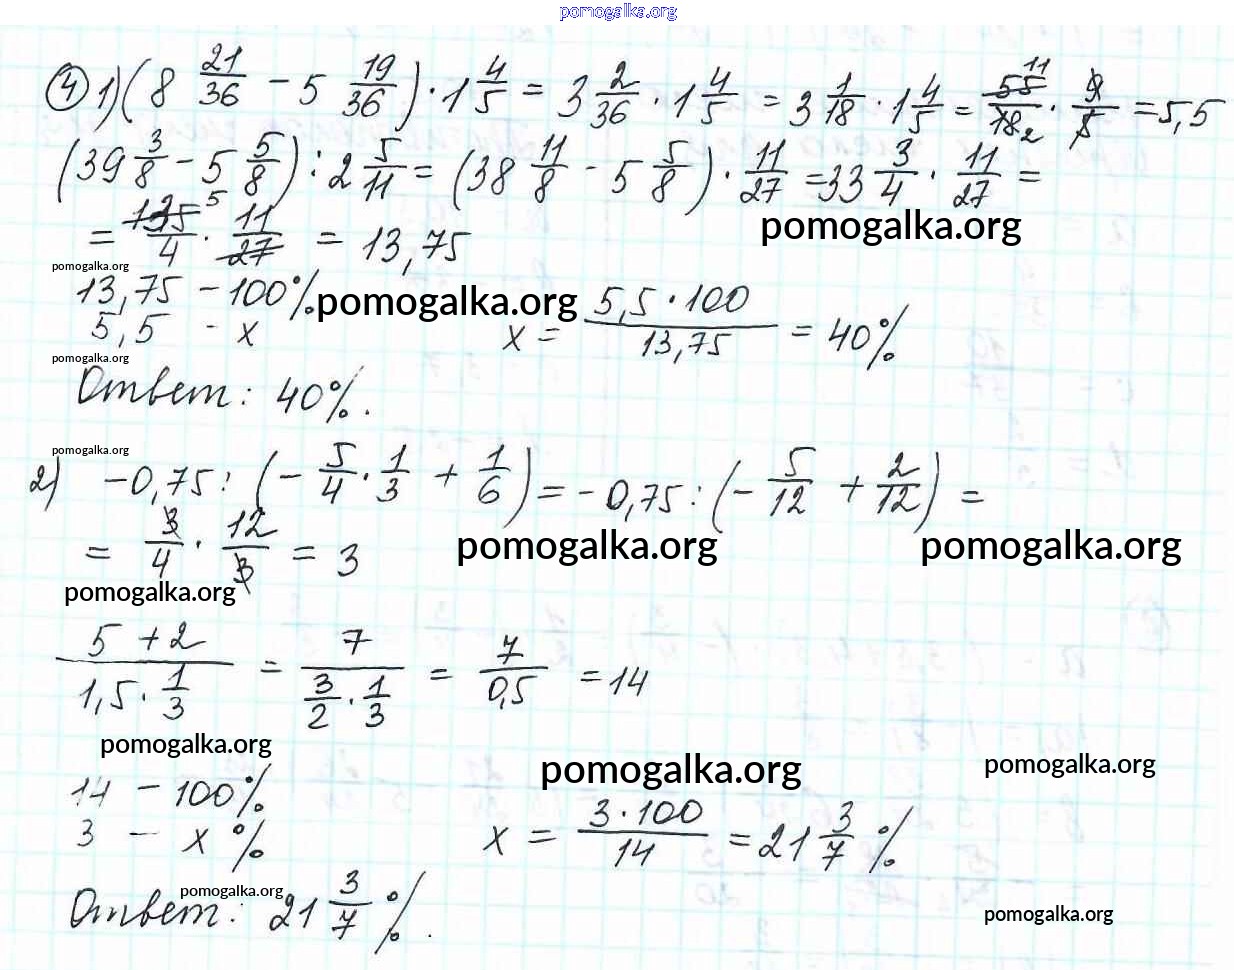 pomogalka.org
④ 1) (8 21/36 - 5 19/36) · 1 4/5 = 3 2/36 · 1 4/5 = 3 1/18 · 1 4/5 = 55 11/18 2 · 9/5 = 5,5
(39 3/8 - 5 5/8) : 2 5/11 = (38 11/8 - 5 5/8) · 11/27 = 33 3/4 · 11/27 =
pomogalka.org
= 135 5/4 · 11/27 = 13,75
pomogalka.org
13,75 - 100%
pomogalka.org
5,5 - x x = 5,5 · 100/13,75 = 40%
pomogalka.org
Ответ: 40%.
pomogalka.org
2) -0,75 : (- 5/4 · 1/3 + 1/6) = -0,75 : (- 5/12 + 2/12) =
= 3/4 · 12/3 = 3
pomogalka.org pomogalka.org
pomogalka.org
5 + 2/1,5 · 1/3 = 7/3/2 · 1/3 = 7/0,5 = 14
pomogalka.org
pomogalka.org pomogalka.org
14 - 100%
3 - x % x = 3 · 100/14 = 21 3/7 %
pomogalka.org
Ответ: 21 3/7 %.
pomogalka.org